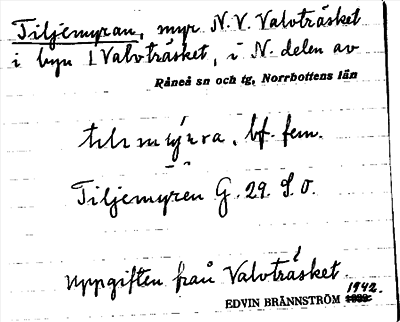 Tiljemyran, myr N.V. Valvträsket
i byn 1 Valvträsket, i N. delen av
Råneå sn och tg, Norrbottens län
bf. fem.
Tiljemyren G. 29. S.O.
Uppgiften från Valvträsket.
EDVIN BRÄNNSTRÖM 1942.